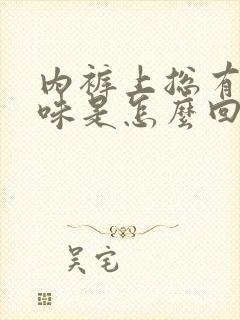 内裤上总有
味是怎么回
吴宅